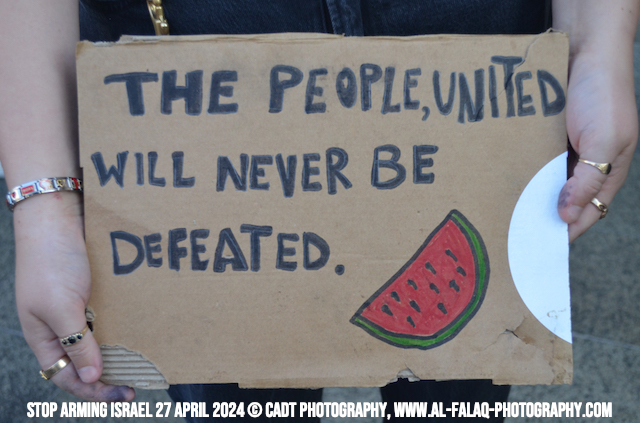 THE PEOPLE, UNITED
WILL NEVER BE
DEFEATED.
STOP ARMING ISRAEL 27 APRIL 2024 © CADT PHOTOGRAPHY, WWW.AL-FALAQ-PHOTOGRAPHY.COM